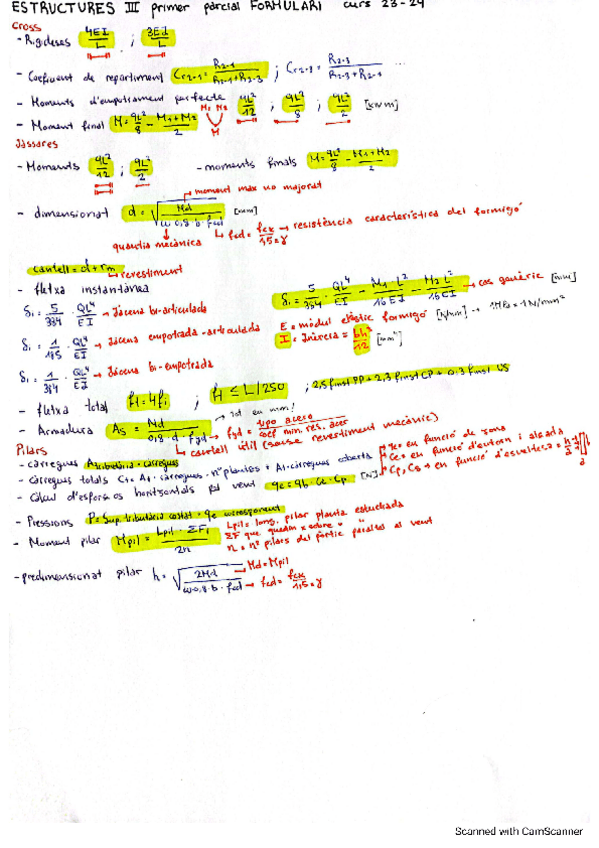 ESTRUCTURES III primer parcial FORMULARI curs 23-24
Cross
- Rigideses 4EI/L ; 3EI/L
- Coeficient de repartiment Cr2-1 = R2-1/(R2-1+R2-3) ; Cr2-3 = R2-3/(R2-3+R2-1) ...
- Moments d'empotrament perfecte qL²/12 ; qL²/8 ; qL²/2 [kN m]
M1 M2
- Moment final M = qL²/8 - (M1+M2)/2
M
Jàsseres
- Moments qL²/12 ; qL²/2 - moments finals M = qL²/8 - (M1+M2)/2
→ moment màx no majorat
- dimensionat d = √(Md/(ω·0,8·b·fcd)) [mm]
quantia mecànica
fcd = fck/1,5=γ → resistència característica del formigó
cantell = d + rm → revestiment
- fletxa instantània
δi = 5/384 · QL⁴/EI → Jàcena bi-articulada
δi = 5/384 · QL⁴/EI - M1 L²/16EI - M2 L²/16EI → cas genèric [mm]
δi = 1/185 · QL⁴/EI → Jàcena empotrada-articulada
E = mòdul elàstic formigó [N/mm²] → 1MPa = 1N/mm²
I = Inèrcia = bh³/12 [mm⁴]
δi = 1/384 · QL⁴/EI → Jàcena bi-empotrada
- fletxa total ft = 4fi ; ft ≤ L/250 ;
- Armadura As = Nd/(0,8·d·fyd)
fyd = tipo acero/coef min. res. acer
cantell útil (sense revestiment mecànic)
Pilars
- càrregues A tributària · càrregues
- Càrregues totals Ct = A1 · càrregues · nº plantes + A1 · càrregues coberta
- Càlcul d'esforços horitzontals pel vent qe = qb · Ce · Cp [N]
en funció de zona
Ce = en funció d'entorn i alçada
Cp, Cs → en funció d'esveltesa =
- Pressions P = Sup. tributària costat · qe corresponent
- Moment pilar Mpil = Lpil · ΣFi/2n
Lpil = long. pilar planta estudiada
ΣF que queden x sobre " "
n = nº pilars del pòrtic paral·lel al vent
- predimensionat pilar h = √(2Md/(ω·0,8·b·fcd)) → Md = Mpil
→ fcd = fck/1,5=γ
Scanned with CamScanner